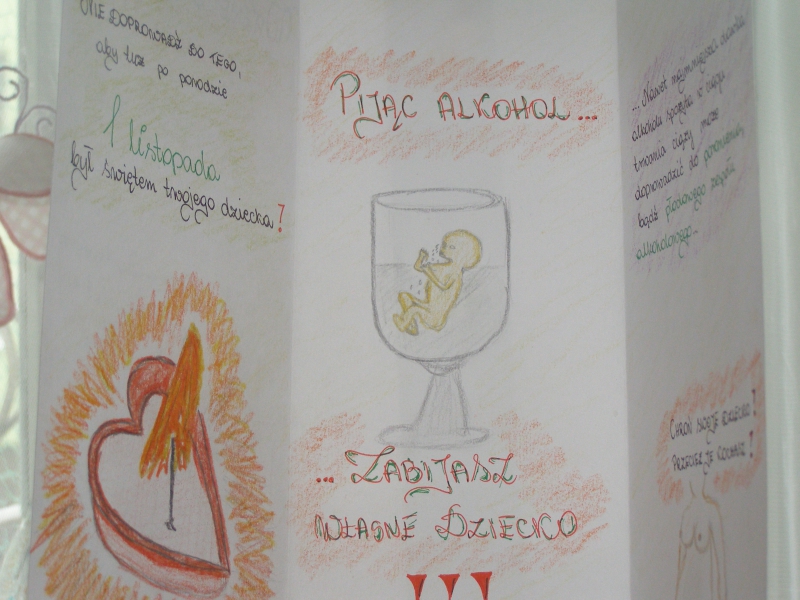 NIE DOPROWADŹ DO TEGO,
aby tuż po porodzie
1 listopada
był świętem twojego dziecka!
PIJĄC ALKOHOL...
...ZABIJASZ
WŁASNE DZIECKO
!!!
...Nawet najmniejsza dawka
alkoholu spożyta w ciągu
trwania ciąży może
doprowadzić do poronienia,
bądź płodowego zespołu
alkoholowego...
CHROŃ SWOJE DZIECKO!
PRZECIEŻ JE KOCHASZ!